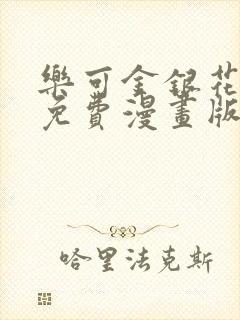 樂可金銀花
免費漫畫版
哈里法克斯